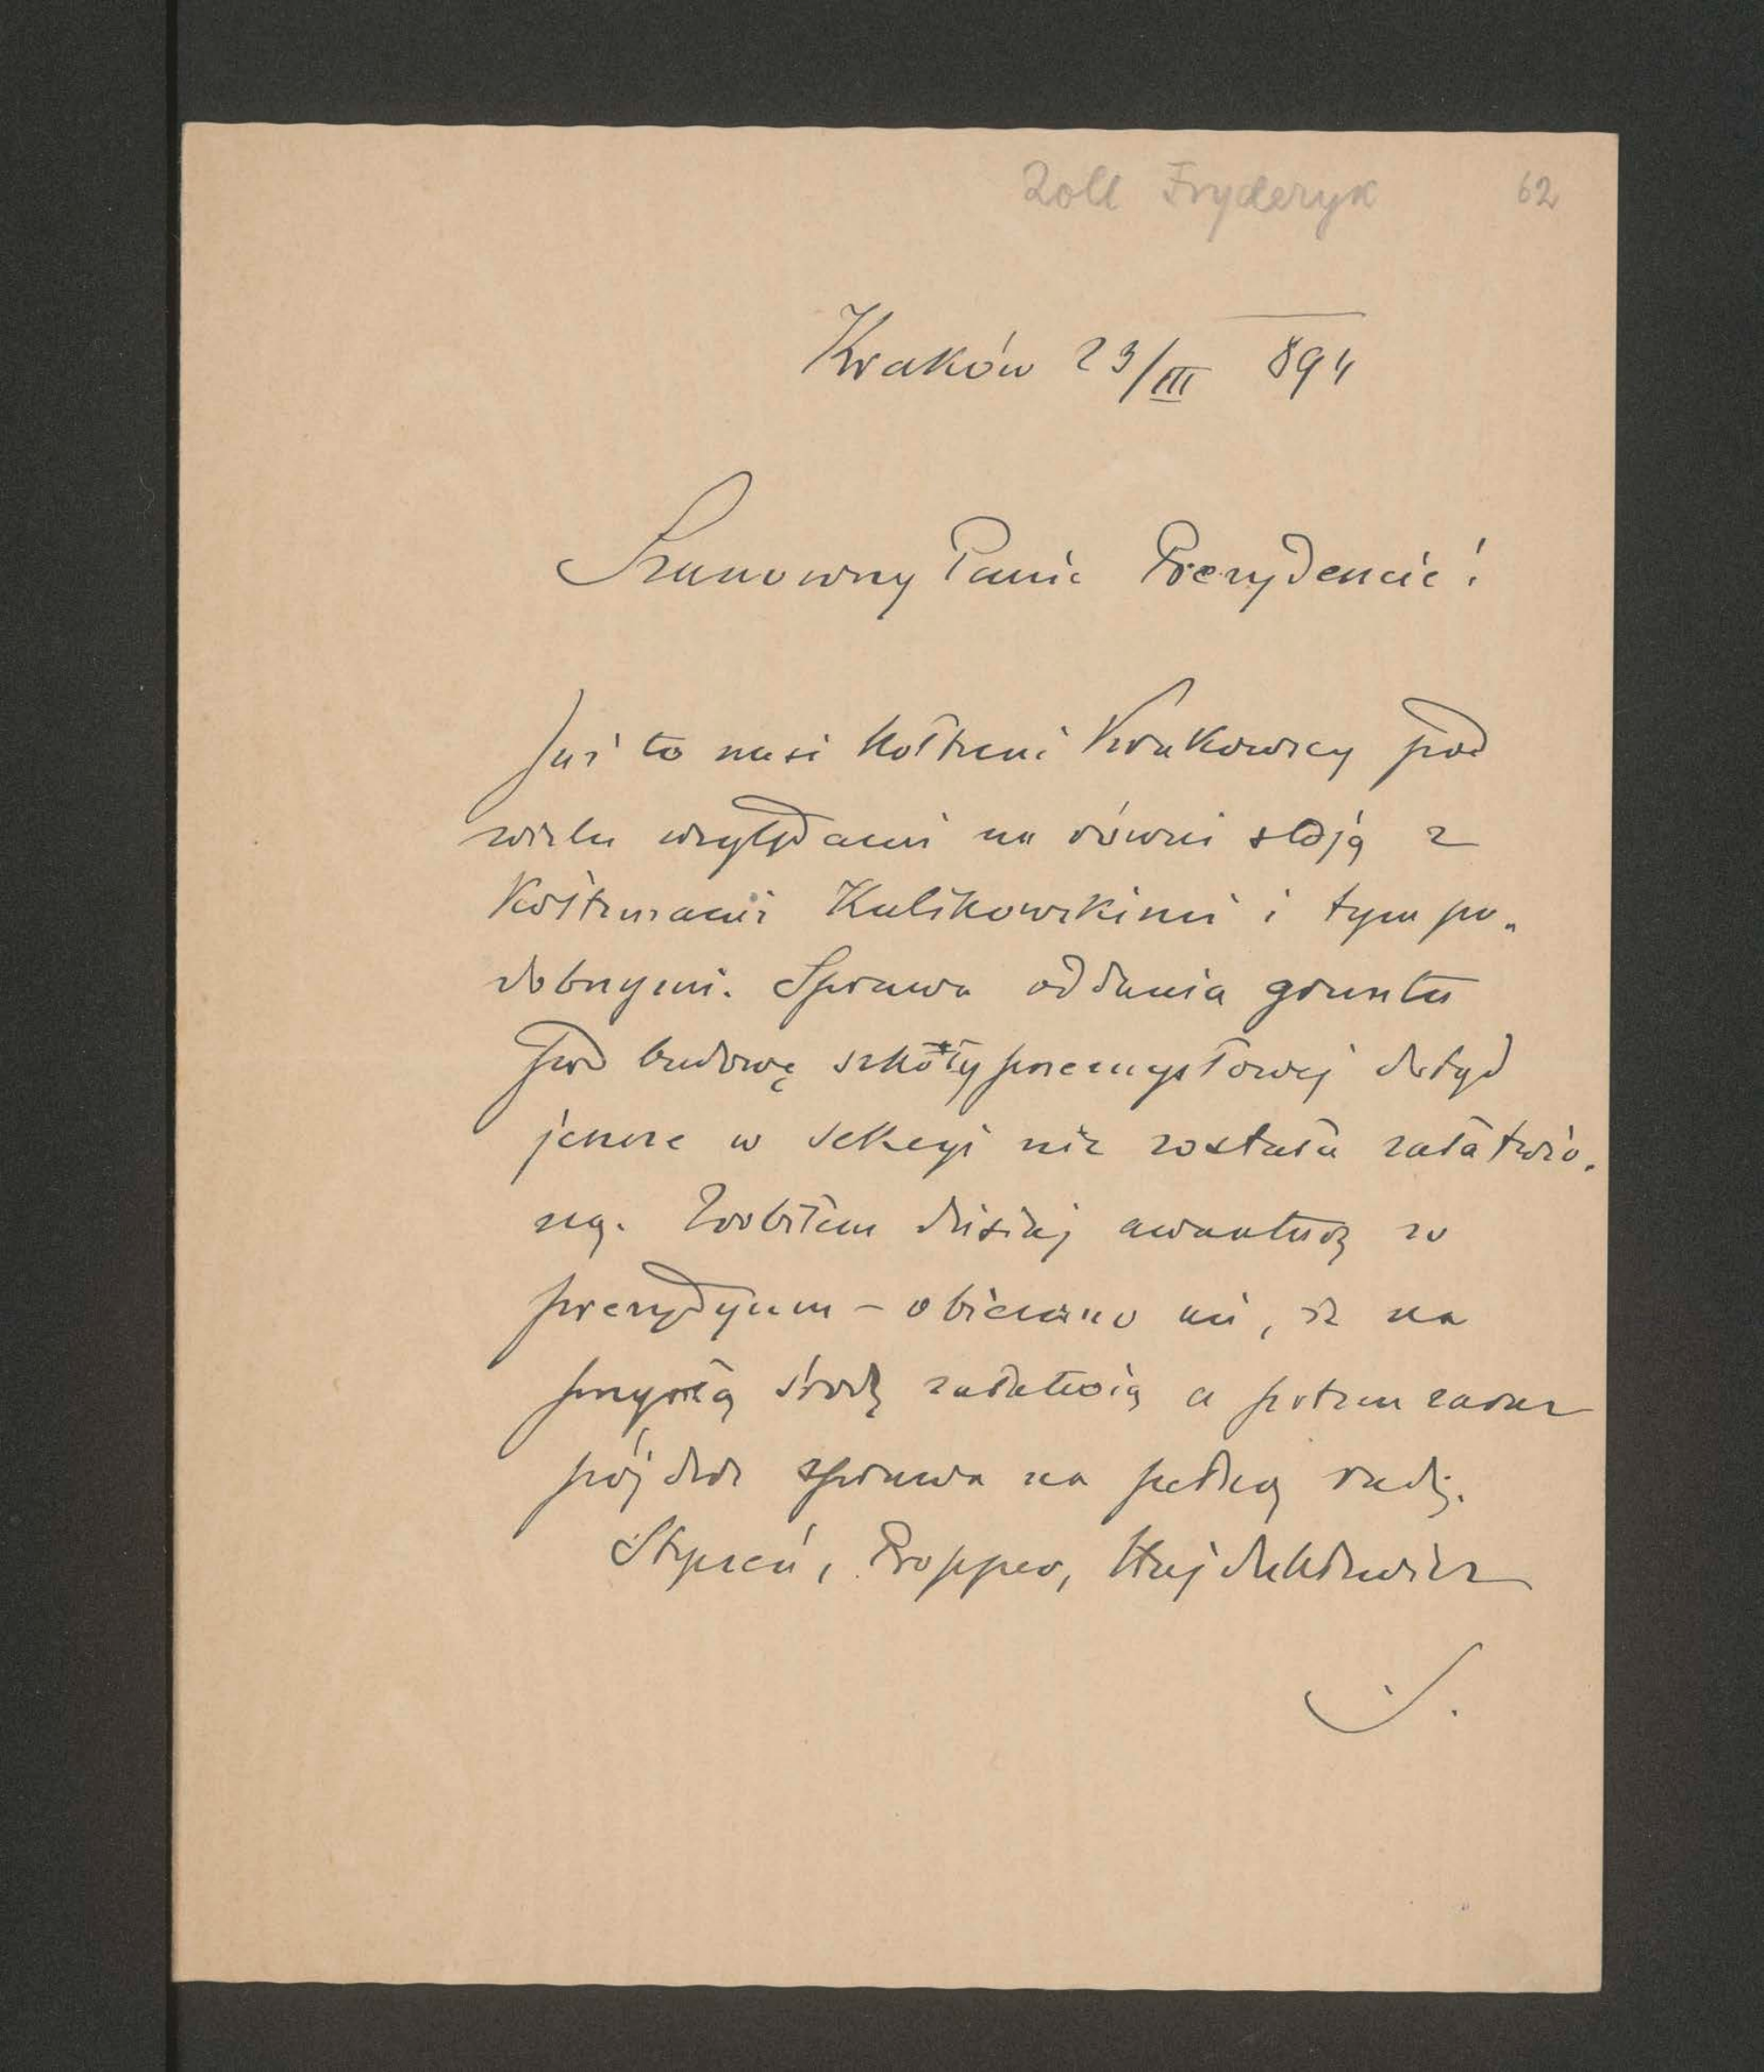 Zoll Fryderyk 62
Kraków 23/III 894
Szanowny Panie Prezydencie!
Już to nasi kołtuni Krakowscy pod
wielu względami na równi stoją z
Kołtunami Kulikowskimi i tym po-
dobnymi. Sprawa oddania gruntu
pod budowę szkoły przemysłowej dotąd
jeszcze w sekcyi nie została załatwio-
ną. Zrobiłem dzisiaj awanturę w
prezydyum – obiecano mi, iż na
przyszłą środę załatwią a potem zaraz
pójdzie sprawa na pełną radę.
Styczeń, Propper, Hajdukiewicz